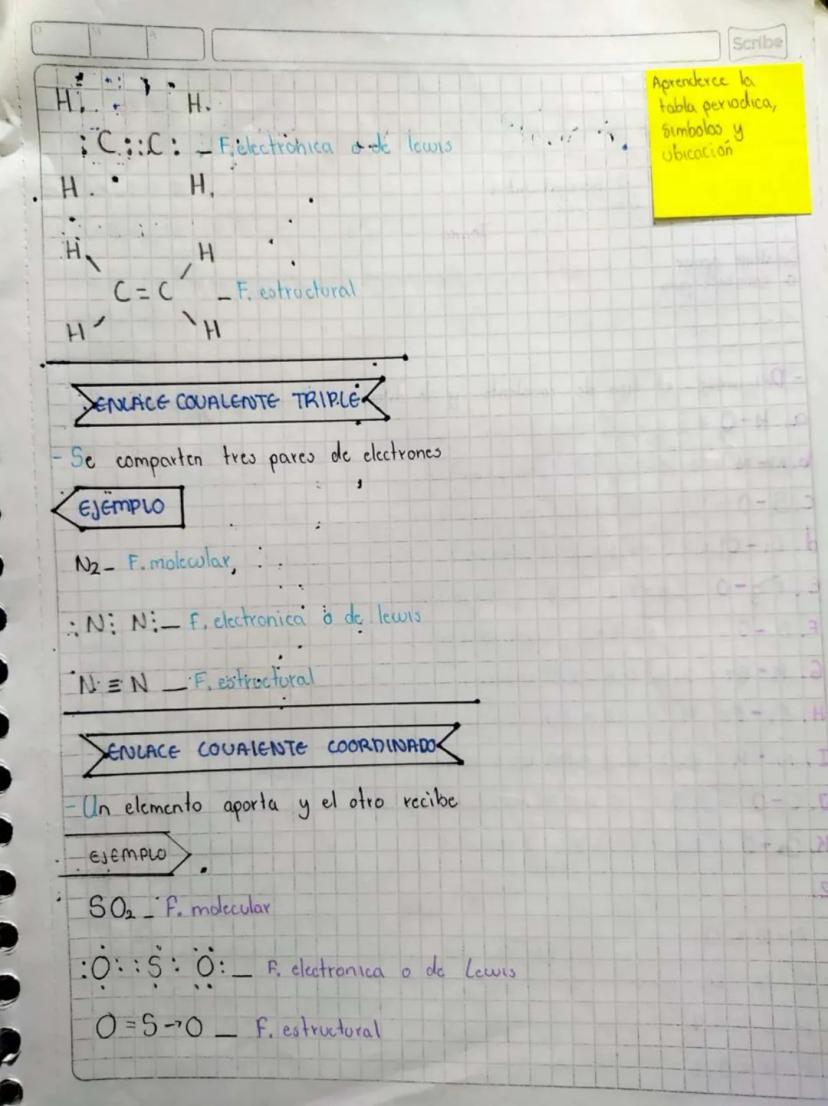 Scribe
Aprenderce la
tabla periodica,
simbolos y
ubicación
H. H.
:C::C: - F. electrónica o de lewis
H. H.
H H
C=C - F. estructural
H H
ENLACE COVALENTE TRIPLE
- Se comparten tres pares de electrones
EJEMPLO
N2 - F. molecular,
:N⋮ N: - F. electronica o de lewis
N≡N - F. estructural
ENLACE COVALENTE COORDINADO
- Un elemento aporta y el otro recibe
EJEMPLO
SO2 - F. molecular
:O::S: O: - F. electronica o de Lewis
O=S→O - F. estructural